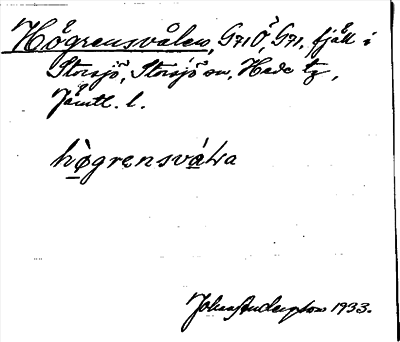 Högrensvålen, G71Ö, G71, fjäll i
Storsjö, Storsjö sn, Hede tg,
Jämtl. l.
högrensvála
Johan Anderson 1933.